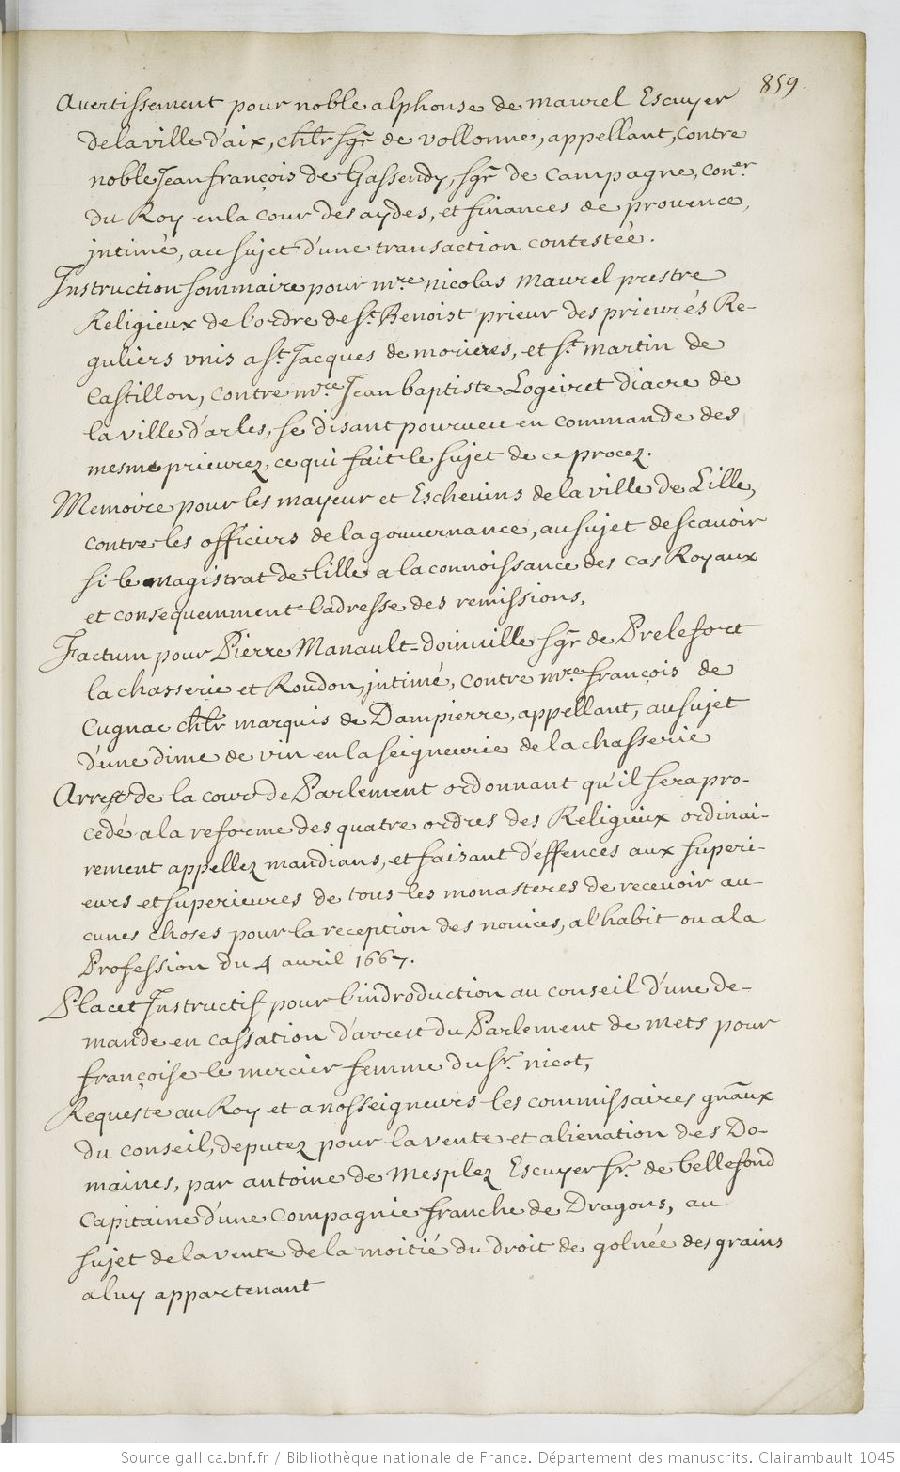 859.
Avertissement pour noble alphonse de maurel Escuyer
de la ville d'aix, chlr sgr de vollonne, appellant, contre
noble Jean françois de Gassendy, sgr de Campagne, coner
du Roy en la cour des aydes, et finances de provence,
intimé, au sujet d'une transaction contestée.
Instruction sommaire pour mre nicolas maurel prestre
Religieux de l'ordre de St Benoist prieur des prieurés Re-
guliers vnis a St Jacques de morieres, et St martin de
Castillon, contre mre Jean baptiste Logeiret diacre de
la ville d'arles, se disant pourveu en commande des
mesme prieurez, ce qui fait le sujet de ce procez.
Memoire pour les mayeur et Eschevins de la ville de Lille,
contre les officiers de la gouvernance, au sujet de scavoir
si le magistrat de lille a la connoissance des cas Royaux
et consequemment l'adresse des remissions,
Factum pour Pierre Manault-doinville sgr de Prelefort
la chasserie et Roudon, intimé, contre mre françois de
Cugnac chlr marquis de Dampierre, appellant, au sujet
d'une dime de vin en la seigneurie de la chasserie
Arrest de la cour de Parlement ordonnant qu'il sera pro-
cedé a la reforme des quatre ordres des Religieux ordinai-
rement appellez mandians, et faisant d'effences aux superi-
eurs et superieures de tous les monasteres de recevoir au-
cunes choses pour la reception des novices, a l'habit ou a la
Profession du 4 avril 1667.
Placet Instructif pour l'indroduction au conseil d'une de-
mande en cassation d'arrest du Parlement de mets pour
françoise le mercier femme du Sr. nicot,
Requeste au Roy et a nosseigneurs les commissaires gnaux
du conseil, deputez pour la vente et alienation des Do-
maines, par antoine de Mesplez Escuyer Sr. de bellefond
Capitaine d'une Compagnie franche de Dragons, au
sujet de la vente de la moitié du droit de golnée des grains
a luy appartenant
Source gallica.bnf.fr / Bibliothèque nationale de France. Département des manuscrits. Clairambault 1045